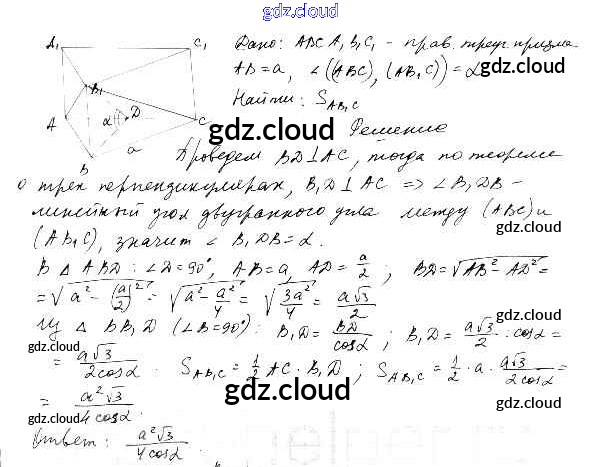 gdz.cloud
A₁ C₁ B₁ A C B D α a
Дано: ABCA₁B₁C₁ - прав. треуг. призма
AB = a, ∠((ABC), (AB₁C)) = α
gdz.cloud
Найти: S_AB₁C
gdz.cloud
gdz.cloud
Решение
Проведем BD⊥AC, тогда по теореме
о трех перпендикулярах, B₁D⊥AC => ∠B₁DB -
gdz.cloud
линейный угол двугранного угла между (ABC) и
gdz.cloud
(AB₁C), значит ∠B₁DB = α.
gdz.cloud
В △ABD: ∠D = 90°, AB = a, AD = a/2; BD = √(AB² - AD²) =
gdz.cloud
= √(a² - (a/2)²) = √(a² - a²/4) = √(3a²/4) = a√3/2
Из △BB₁D (∠B = 90°): B₁D = BD/cosα; B₁D = a√3/2 : cosα =
gdz.cloud
gdz.cloud
= a√3/2cosα. S_AB₁C = 1/2 AC · B₁D; S_AB₁C = 1/2 · a · a√3/2cosα =
gdz.cloud
= a²√3/4cosα.
gdz.cloud
gdz.cloud
Ответ: a²√3/4cosα.
gdz.cloud